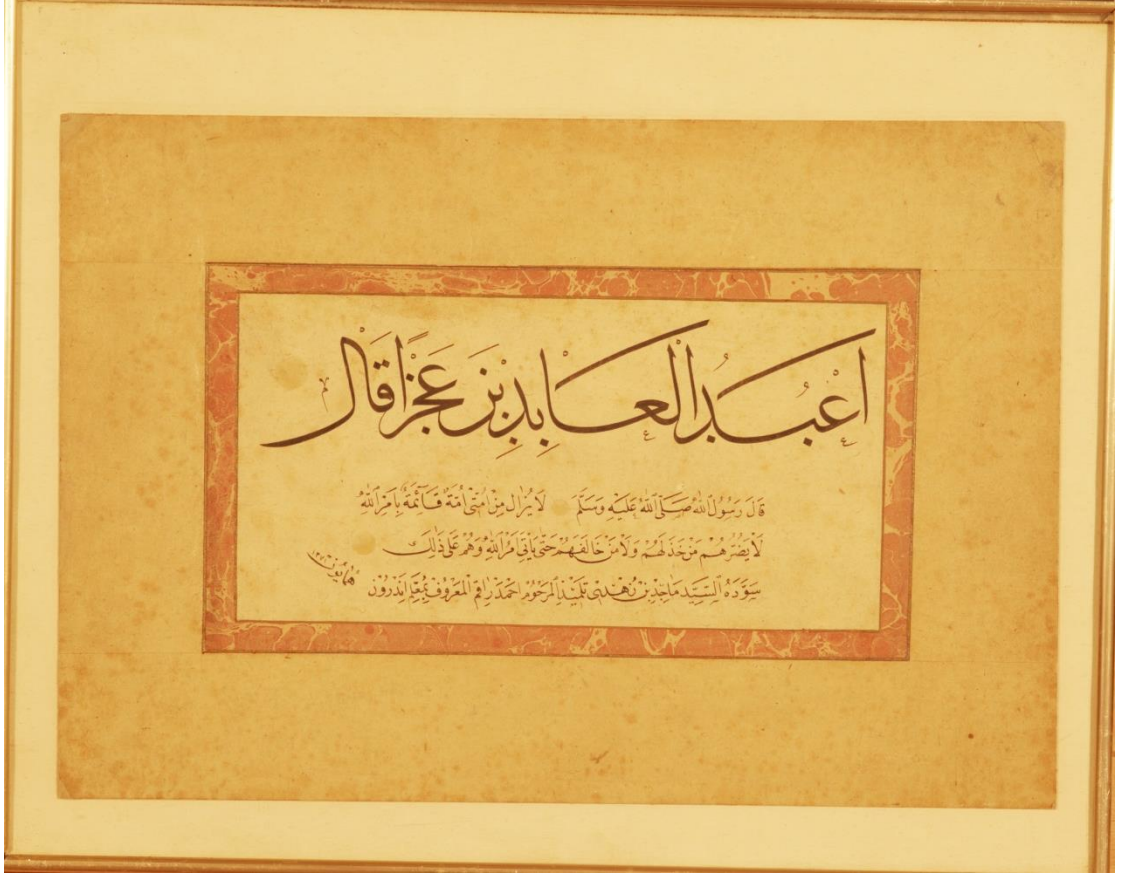 اَعْبَدُ الْعَابِدِيْنَ عَجْزًا قَالَ
قَالَ رَسُولُ اللّٰهِ صَلَّى اللّٰهُ عَلَيْهِ وَسَلَّمَ لَا يَزَالُ مِنْ اُمَّتِي اُمَّةٌ قَائِمَةٌ بِاَمْرِ اللّٰهِ
لَا يَضُرُّهُمْ مَنْ خَذَلَهُمْ وَلَا مَنْ خَالَفَهُمْ حَتّٰى يَأْتِيَ اَمْرُ اللّٰهِ وَهُمْ عَلَى ذَالِكَ
سَوَّدَهُ السَّيِّد مَاجِد بِنْ تِلْمِيذ الْمَرْحُوم اَحْمَد رَاقِم الْمَعْرُوف بِمُعَلِّم اَنْدَرُون
هُمَايُون